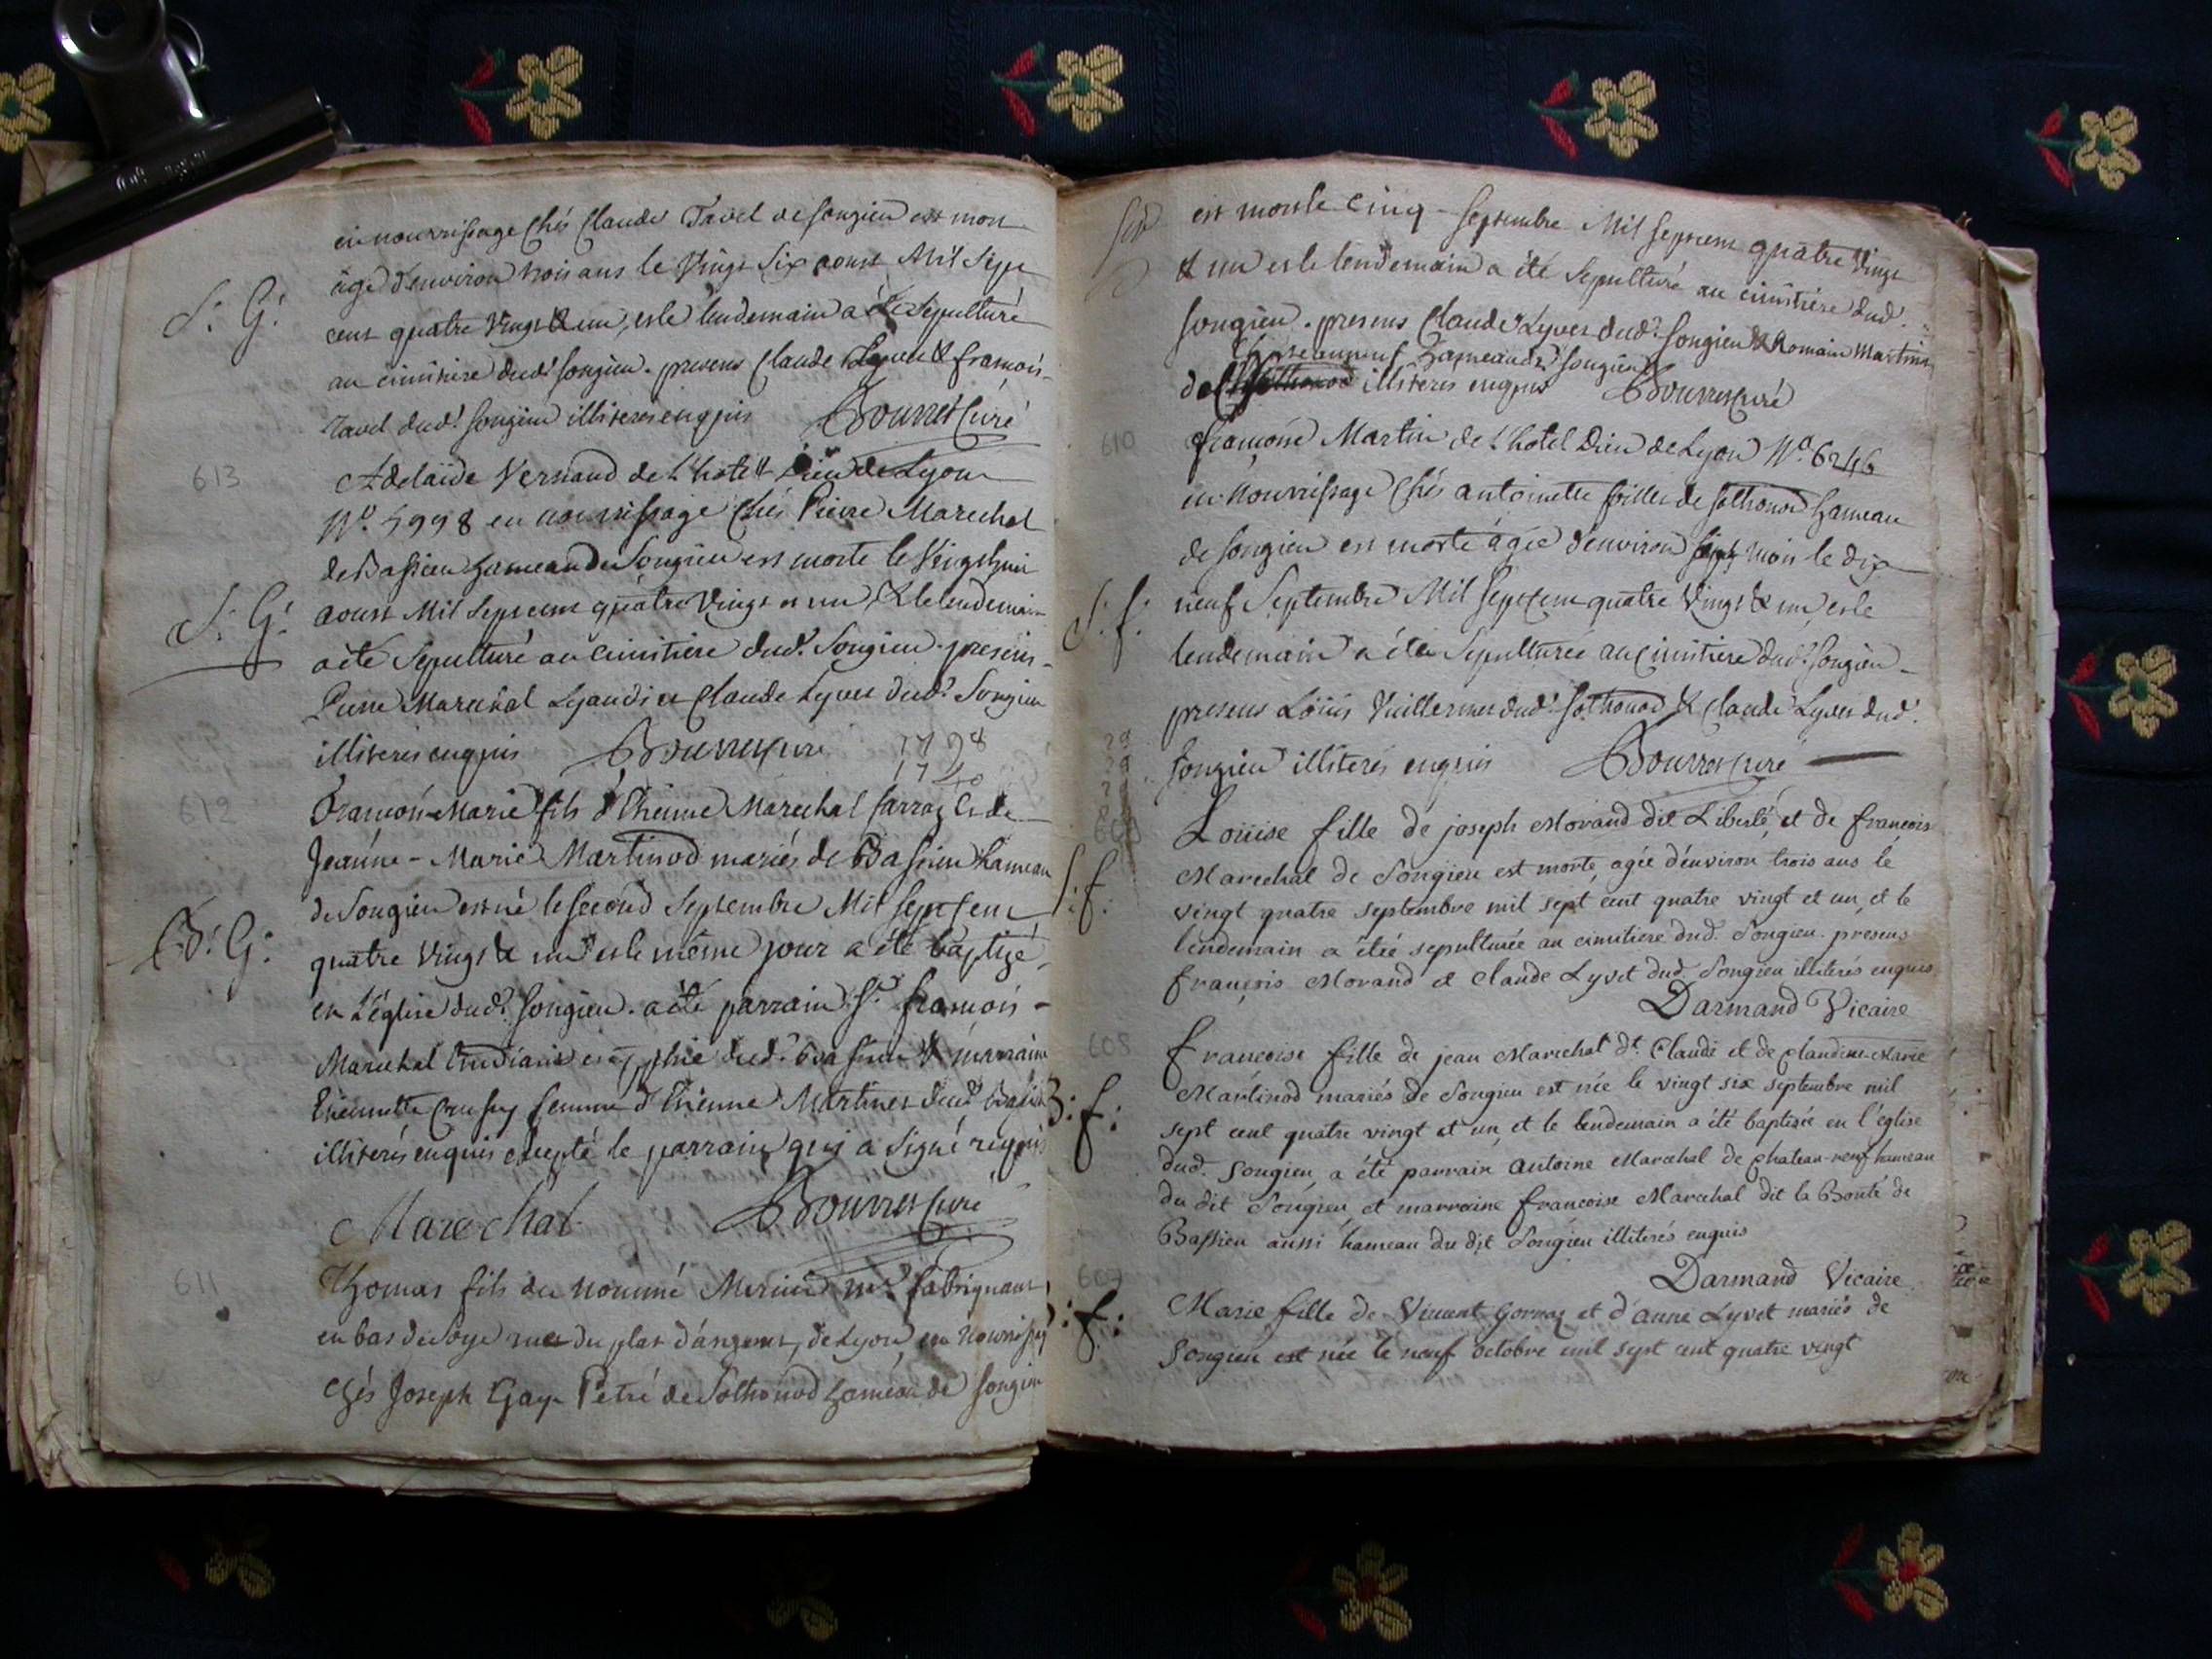 en nourrissage chés Claude Tavel de songieu est mort
âgé d'environ trois ans le vingt six aoust Mil sept
S. G. cent quatre vingt & un, et le lendemain a été sépulturé
au cimitiere dud. songieu. presens Claude Lyvet & francois
Tavel dud. songieu illiterés enquis Bourret Curé
613 Adelaïde Vernand de L'hotel Dieu de Lyon
N.º 5998 en nourrissage chés Pierre Marechal
de Bassieu hameau de Songieu est morte le vingt huit
S. G. aoust Mil sept cent quatre vingt et un, & le lendemain
a été sepulturé au cimitiere dud. Songieu. presens
Pierre Marechal et Claude Lyvet dud. Songieu
illiterés enquis Bourret Curé
612 francois Marie fils d'Etienne Marechal et de
Jeanne-Marie Martinod mariés de Bassieu hameau
de Songieu est né le second Septembre Mil sept cent
B. G. quatre vingt & un et le même jour a été baptizé
en L'église dud. songieu. a été parrain Sr. francois
Marechal dud. Bassieu & marraine
Etiennette femme d'Etienne Martinet dud. Bassieu
illiterés enquis excepté le parrain qui a signé requis
Marechal Bourret Curé
611 Thomas fils du nommé md. fabriquant
en bas de soye rue du plat d'argent, de Lyon en nourrissage
chés Joseph Gay Petré de Sothonod hameau de songieu
est mort le cinq septembre Mil sept cent quatre vingt
& un et le lendemain a été sepulturé au cimitiere dud.
songieu. presens Claude Lyvet dud. songieu & Romain Martin
Chateauneuf hameau dud. songieu
de illiterés enquis Bourret Curé
610 francoise Martin de L'hotel Dieu de Lyon N.º 6246
en nourrissage chés antoinette de sothonod hameau
de songieu est morte âgée d'environ sept mois le dix
S. f. neuf Septembre Mil sept cent quatre vingt & un, et le
lendemain a été sepulturée au cimitiere dud. songieu
presens Loüis Vuillermet dud. Sothonod & Claude Lyvet dud.
songieu illiterés enquis Bourret Curé
Loüise fille de joseph Morand dit Liberté, et de francoise
S. f. Marechal de Songieu est morte, agée d'environ trois ans le
vingt quatre septembre mil sept cent quatre vingt et un, et le
lendemain a étée sepulturée au cimitiere dud. Songieu. presens
françois Morand et Claude Lyvet dud. Songieu illiterés enquis
Darmand Vicaire
608 francoise fille de jean Marechal dt. Claude et de Claudine-Marie
Martinod mariés de Songieu est née le vingt six septembre mil
B. f. sept cent quatre vingt et un, et le lendemain a été baptisée en l'église
dud. Songieu, a été parrain antoine Marechal de chateau-neuf hameau
du dit Songieu et marraine francoise Marechal dit la Bonté de
Bassieu aussi hameau du dit Songieu illiterés enquis
Darmand Vicaire
607 Marie fille de Vincent Gorraz et d'anne Lyvet mariés de
Songieu est née le neuf octobre mil sept cent quatre vingt